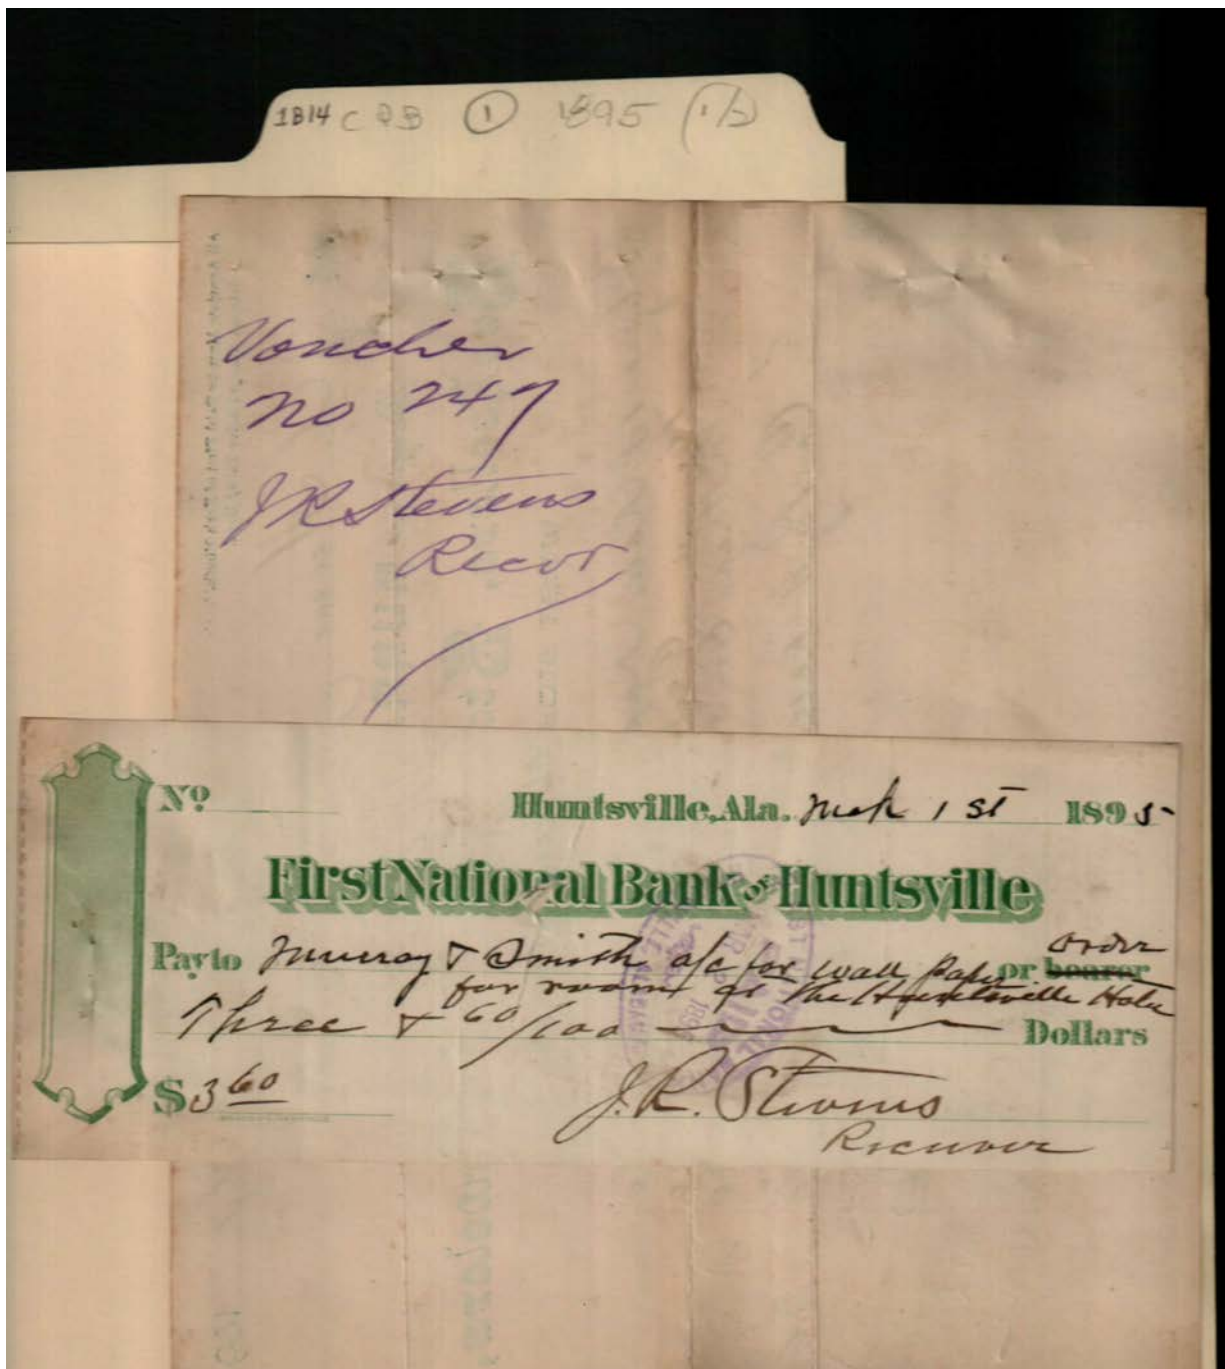 1B14 C D B 1 1895 (1/2)
Voucher
No 247
J R Stevens
Recvr
No
Huntsville, Ala. Mch 1st 1895
First National Bank of Huntsville
order
Pay to Murray & Smith a/c for wall Paper or bearer
for room at the Huntsville Hotel
Three & 60/100 Dollars
$3 60
J. R. Stevens
Receiver